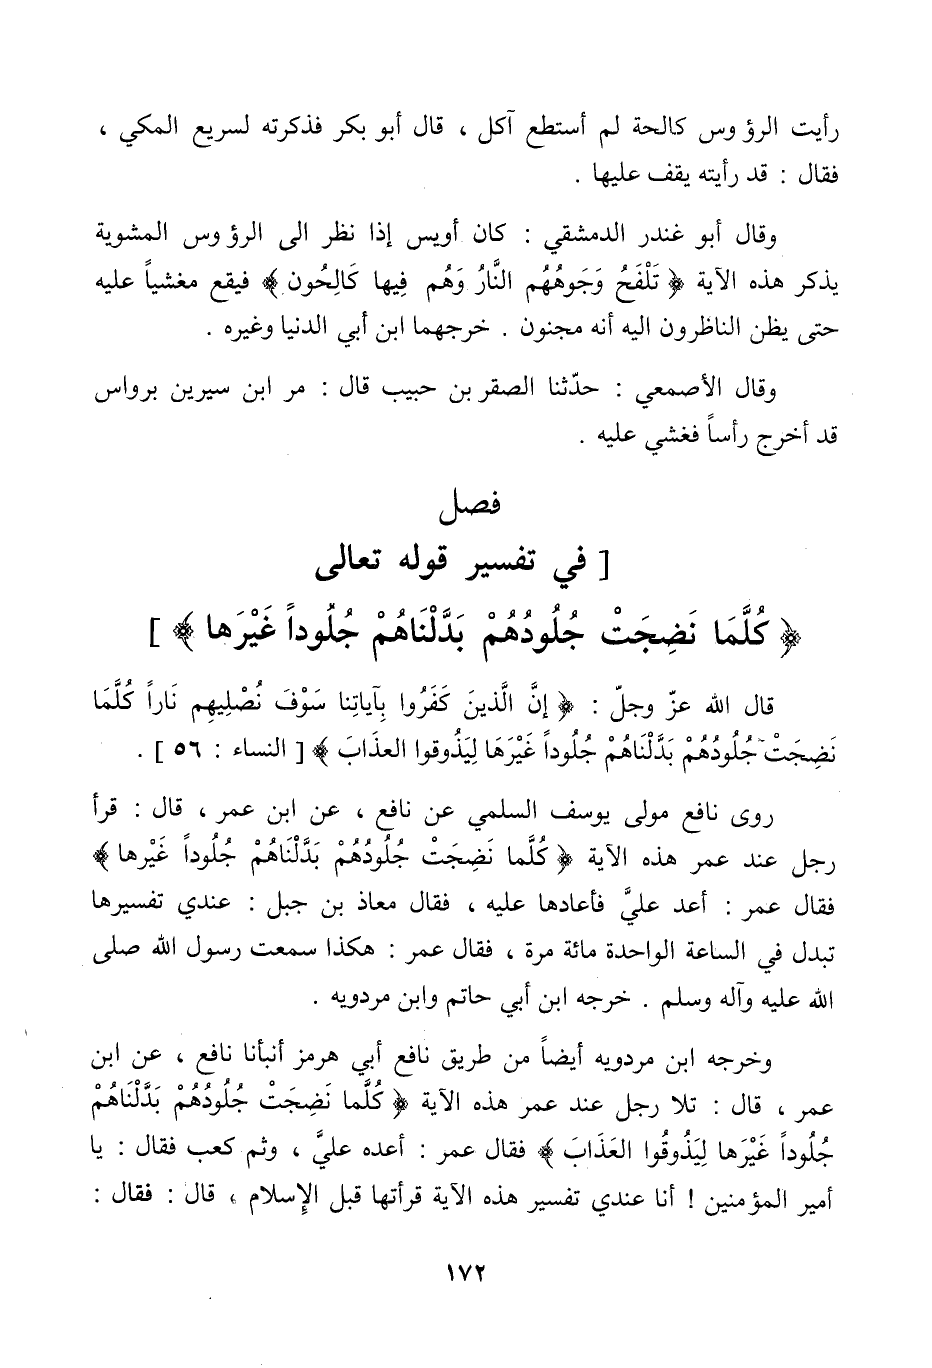 رأيت الرؤوس كالحة لم أستطع آكل ، قال أبو بكر فذكرته لسريع المكي ،
فقال : قد رأيته يقف عليها .
وقال أبو غندر الدمشقي : كان أويس إذا نظر الى الرؤوس المشوية
يذكر هذه الآية ﴿ تَلْفَحُ وَجَوهُهُم النَّارُ وَهُم فِيها كَالِحُون ﴾ فيقع مغشياً عليه
حتى يظن الناظرون اليه أنه مجنون . خرجهما ابن أبي الدنيا وغيره .
وقال الأصمعي : حدّثنا الصقر بن حبيب قال : مر ابن سيرين برواس
قد أخرج رأساً فغشي عليه .
فصل
[ في تفسير قوله تعالى
﴿ كُلَّمَا نَضِجَتْ جُلُودُهُمْ بَدَّلْنَاهُمْ جُلُوداً غَيْرَها ﴾ ]
قال الله عزّ وجلّ : ﴿ إنَّ الَّذينَ كَفَرُوا بِآياتِنا سَوْفَ نُصْلِيهِم نَاراً كُلَّمَا
نَضِجَتْ جُلُودُهُمْ بَدَّلْنَاهُمْ جُلُوداً غَيْرَهَا لِيَذُوقوا العذَابَ ﴾ [ النساء : ٥٦ ] .
روى نافع مولى يوسف السلمي عن نافع ، عن ابن عمر ، قال : قرأ
رجل عند عمر هذه الآية ﴿ كُلَّما نَضِجَتْ جُلُودُهُمْ بَدَّلْنَاهُمْ جُلُوداً غَيْرها ﴾
فقال عمر : أعد عليَّ فأعادها عليه ، فقال معاذ بن جبل : عندي تفسيرها
تبدل في الساعة الواحدة مائة مرة ، فقال عمر : هكذا سمعت رسول الله صلى
الله عليه وآله وسلم . خرجه ابن أبي حاتم وابن مردويه .
وخرجه ابن مردويه أيضاً من طريق نافع أبي هرمز أنبأنا نافع ، عن ابن
عمر ، قال : تلا رجل عند عمر هذه الآية ﴿ كُلَّما نَضِجَتْ جُلُودُهُمْ بَدَّلْنَاهُمْ
جُلُوداً غَيْرَها لِيَذُوقُوا العَذَابَ ﴾ فقال عمر : أعده عليَّ ، وثم كعب فقال : يا
أمير المؤمنين ! أنا عندي تفسير هذه الآية قرأتها قبل الإسلام ، قال : فقال :
١٧٢